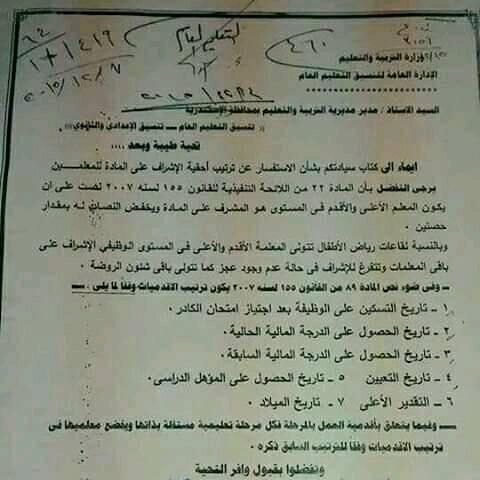 التعليم العام
٤٦٠
١٤١٩
٢٠١٥/١٢/٧
وزارة التربية والتعليم
الإدارة العامة لتنسيق التعليم العام
السيد الاستاذ / مدير مديرية التربية والتعليم بمحافظة الإسكندرية
(( تنسيق التعليم العام ــ تنسيق الإعدادى والثانوي ))
تحية طيبة وبعد ....
ايماء الى كتاب سيادتكم بشأن الاستفسار عن ترتيب أحقية الإشراف على المادة للمعلمين
يرجى التفضل بأن المادة ٢٢ من اللائحة التنفيذية للقانون ١٥٥ لسنه ٢٠٠٧ نصت على ان
يكون المعلم الأعلى والأقدم فى المستوى هو المشرف على المادة ويخفض النصاب له بمقدار
حصتين .
وبالنسبة لقاعات رياض الأطفال تتولى المعلمة الأقدم والأعلى فى المستوى الوظيفي الإشراف على
باقى المعلمات وتتفرغ للإشراف فى حالة عدم وجود عجز كما تتولى باقى شئون الروضة .
ــ وفى ضوء نص المادة ٨٩ من القانون ١٥٥ لسنه ٢٠٠٧ يكون ترتيب الاقدميات وفقاً لما يلى :ــ
١ - تاريخ التسكين على الوظيفة بعد اجتياز امتحان الكادر .
٢ - تاريخ الحصول على الدرجة المالية الحالية .
٣ - تاريخ الحصول على الدرجة المالية السابقة .
٤ - تاريخ التعيين ٥ - تاريخ الحصول على المؤهل الدراسى .
٦ - التقدير الأعلى ٧ - تاريخ الميلاد .
ــ وفيما يتعلق بأقدمية العمل بالمرحلة فكل مرحلة تعليمية مستقلة بذاتها ويخضع معلميها فى
ترتيب الاقدميات وفقاً للترتيب السابق ذكره .
وتفضلوا بقبول وافر التحية